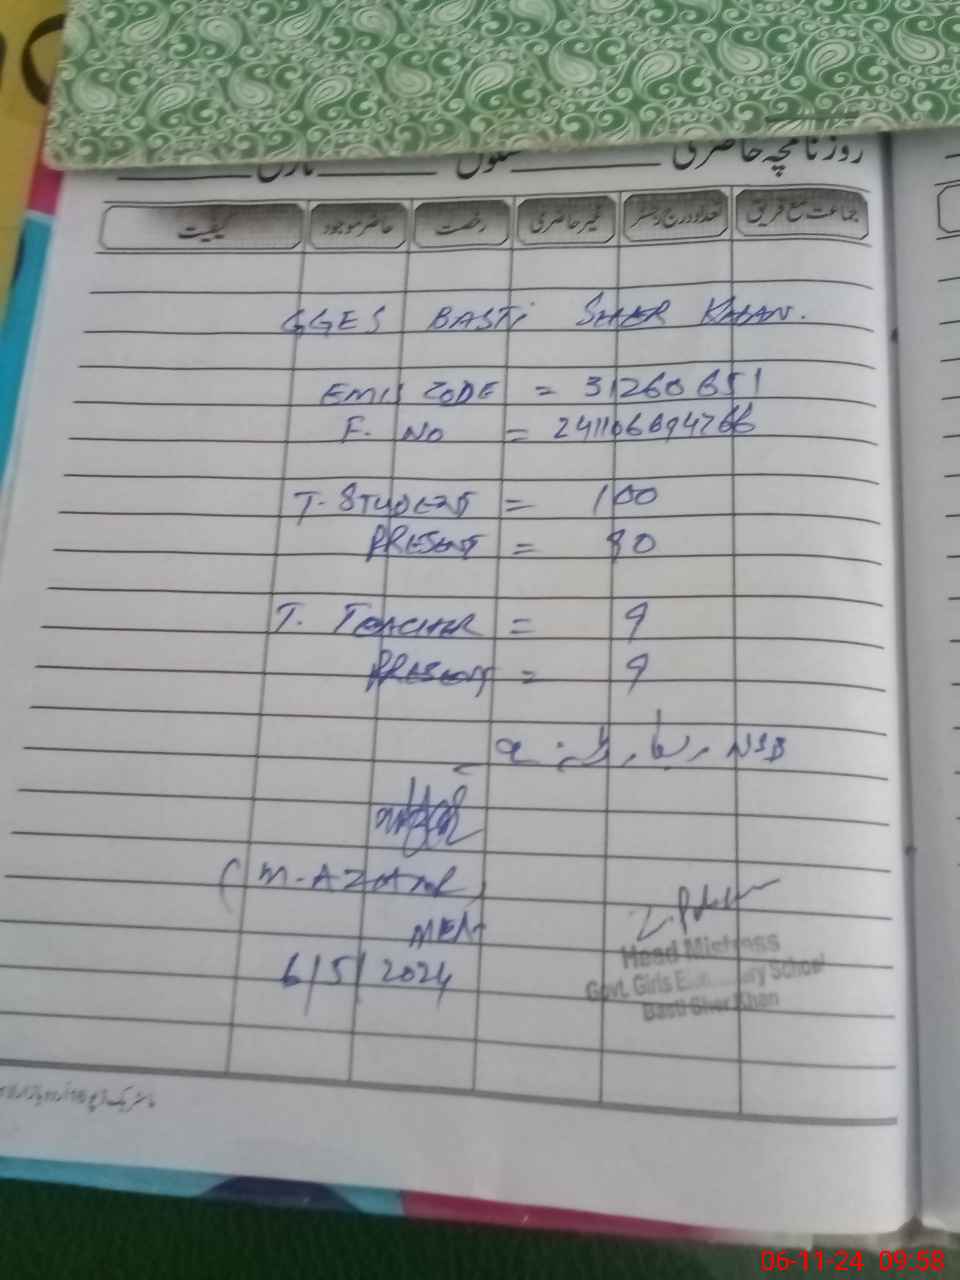 روزنامچہ حاضری
جماعت مع فریق تعداد درج رجسٹر غیر حاضری رخصت حاضر موجود کیفیت
GGES BASTi SHER KHAN.
EMIS CODE = 31260651
F. NO = 241106694766
T. STUDENT = 100
PRESENT = 80
T. TEACHER = 9
PRESENT = 9
NSB
(M. AZHAR)
MEA
6/5/2024
Head Mistress
Govt. Girls Elementary School
Basti Sher Khan
06-11-24 09:58